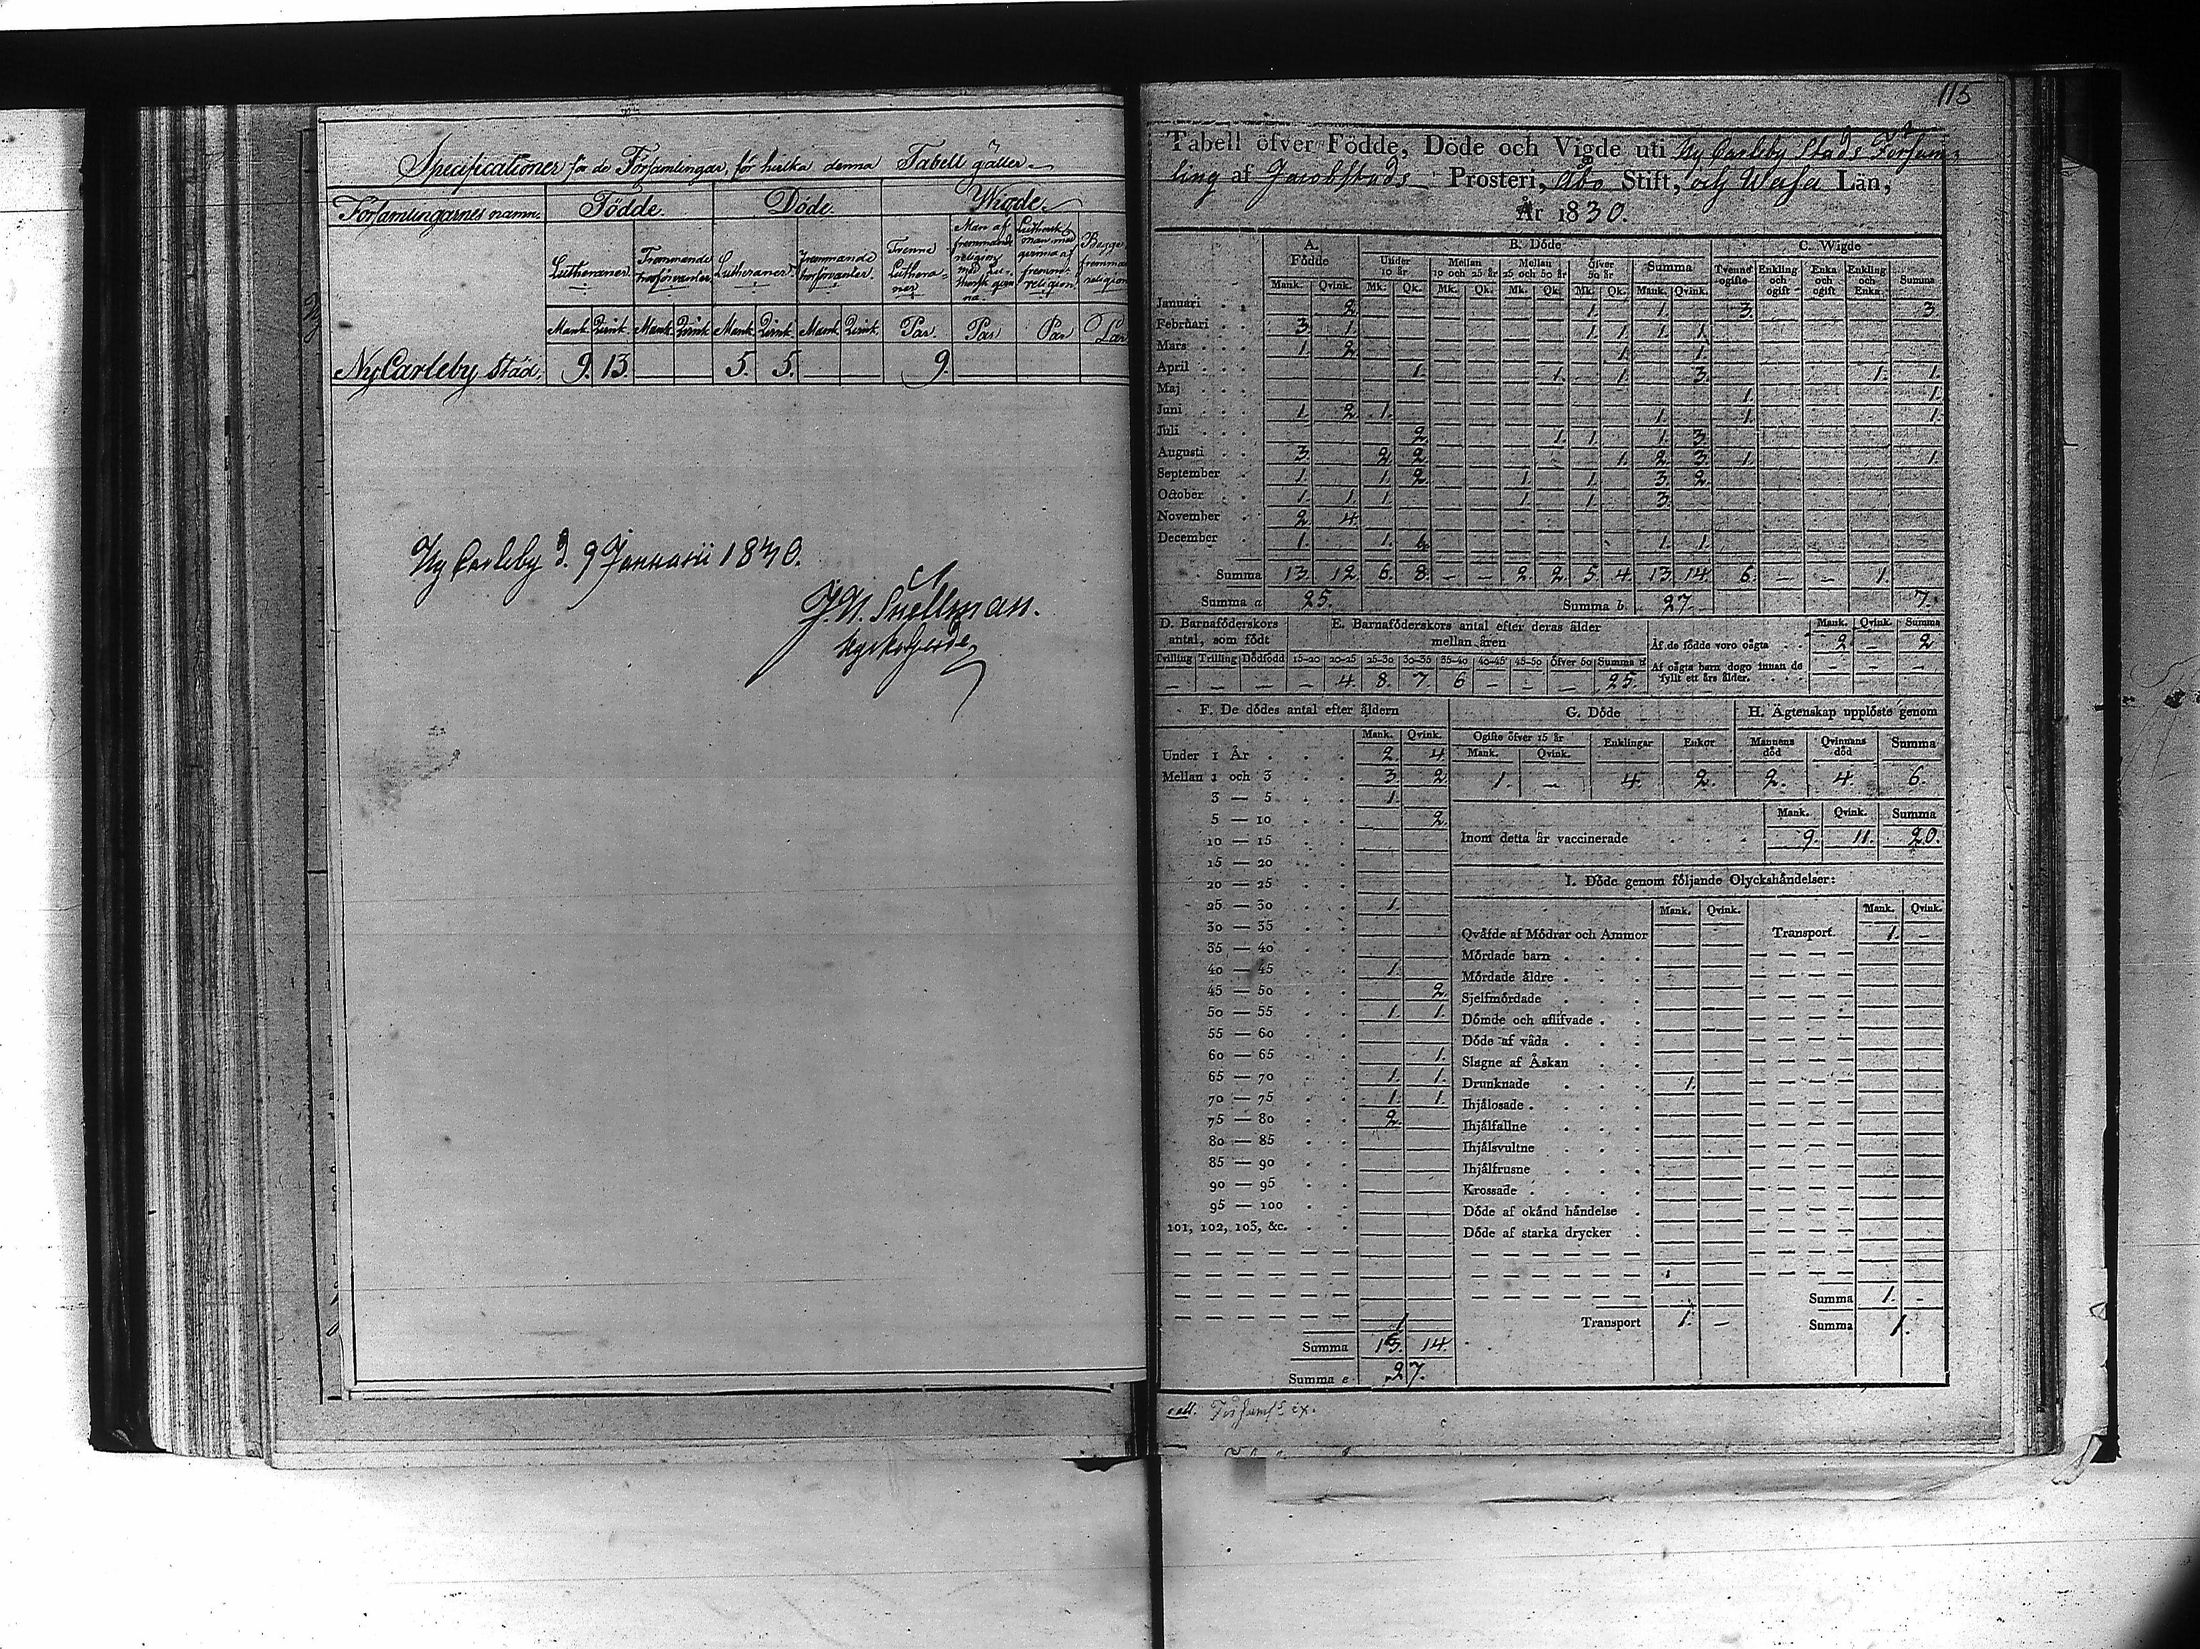 Specificationer för de Församlingar, för hvilka denna Tabell gäller
Församlingarnes namn. Födde. Döde. Wigde.
Lutheraner. Främmande trosförvanter. Lutheraner. Främmande trosförvanter. Tvenne Lutheraner Man af främmande religion med Luthersk qvinna Luthersk man med qvinna af främm. religion. Bägge främmande religion
Mank. Qvink. Mank. Qvink. Mank. Qvink. Mank. Qvink. Par. Par Par Par
Ny Carleby stad, 9. 13. 5. 5. 9.
Ny Carleby d. 9 Januarii 1830.
J. N. Snellman.
Kyrkoherde
115
Tabell öfver Födde, Döde och Vigde uti Ny Carleby Stads Församling
ling af Jacobstads Prosteri, Åbo Stift, och Wasa Län,
År 1830.
A. Födde B. Döde C. Wigde
Under 10 år Mellan 10 och 25 år Mellan 25 och 50 år Öfver 50 år Summa Tvenne ogifte Enkling och ogift Enka och ogift Enkling och Enka Summa
Mank. Qvink. Mk. Qk. Mk. Qk. Mk. Qk. Mk. Qk. Mank. Qvink.
Januari 2 1. 1. 3. 3
Februari 3. 1. 1. 1. 1. 1.
Mars 1. 2 1. 1.
April 1. 1. 1. 3. 1. 1.
Maj 1. 1.
Juni 1. 2. 1. 1. 1. 1.
Juli 2. 1. 1. 1. 3.
Augusti 3. 2. 2. 1. 2. 3. 1. 1.
September 1. 1. 2. 1. 1. 3. 2.
October 1. 1. 1. 1. 1. 3.
November 2. 4.
December 1. 1. 1. 1. 1.
Summa 13. 12. 6. 8. — — 2. 2. 5. 4. 13. 14. 6. — — 1.
Summa a 25. Summa b. 27. 7.
D. Barnaföderskors antal, som födt E. Barnaföderskors antal efter deras ålder mellan åren Mank. Qvink. Summa
Af de födde voro oägta 2 — 2
Tvilling Trilling Dödfödd 15-20 20-25 25-30 30-35 35-40 40-45 45-50 öfver 50 Summa
Af oägta barn dogo innan de fyllt ett års ålder. — — —
— — — — 4. 8. 7 6 — — — 25.
F. De dödes antal efter åldern G. Döde H. Ägtenskap upplöste genom
Mank. Qvink. Ogifte öfver 15 år Enklingar Enkor Mannens död Qvinnans död Summa
Mank. Qvink.
Under 1 År 2. 4
Mellan 1 och 3 3. 2. 1. — 4. 2. 2. 4. 6.
3 — 5 1.
5 — 10 2.
Mank. Qvink. Summa
10 — 15 Inom detta år vaccinerade 9. 11. 20.
15 — 20
20 — 25 I. Döde genom följande Olyckshändelser:
25 — 30 1. Mank. Qvink. Mank. Qvink.
30 — 35 Qväfde af Mödrar och Ammor Transport. 1. —
35 — 40 Mördade barn
40 — 45 1. Mördade äldre
45 — 50 2. Sjelfmördade
50 — 55 1. 1. Dömde och aflifvade
55 — 60 Döde af våda
60 — 65 1. Slagne af Åskan
65 — 70 1. 1. Drunknade 1.
70 — 75 1. 1. Ihjälosade
75 — 80 2. Ihjälfallne
80 — 85 Ihjälsvultne
85 — 90 Ihjälfrusne
90 — 95 Krossade
95 — 100 Döde af okänd händelse
101, 102, 103, &c. Döde af starka drycker
Summa 1. —
Transport 1. — Summa 1.
Summa 13. 14.
Summa e 27.